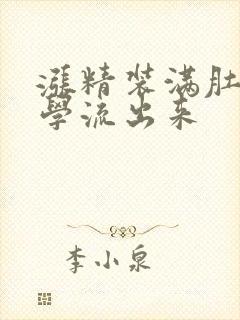 涨精装满肚
学流出来
李小泉